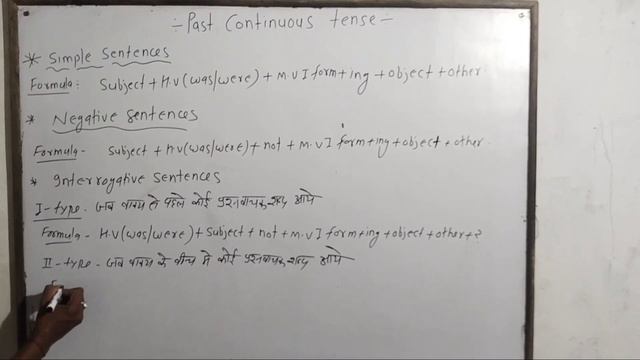 -: Past Continuous tense :-
* Simple Sentences
Formula: Subject + H.V (was/were) + M.V I form + ing + object + other
* Negative Sentences
Formula - Subject + H.V (was/were) + not + M.V I form + ing + object + other.
* Interrogative Sentences
I - type. जब वाक्य से पहले कोई प्रश्नवाचक शब्द आये
Formula - H.V (was/were) + Subject + not + M.V I form + ing + object + other + ?
II - type - जब वाक्य के बीच में कोई प्रश्नवाचक शब्द आये